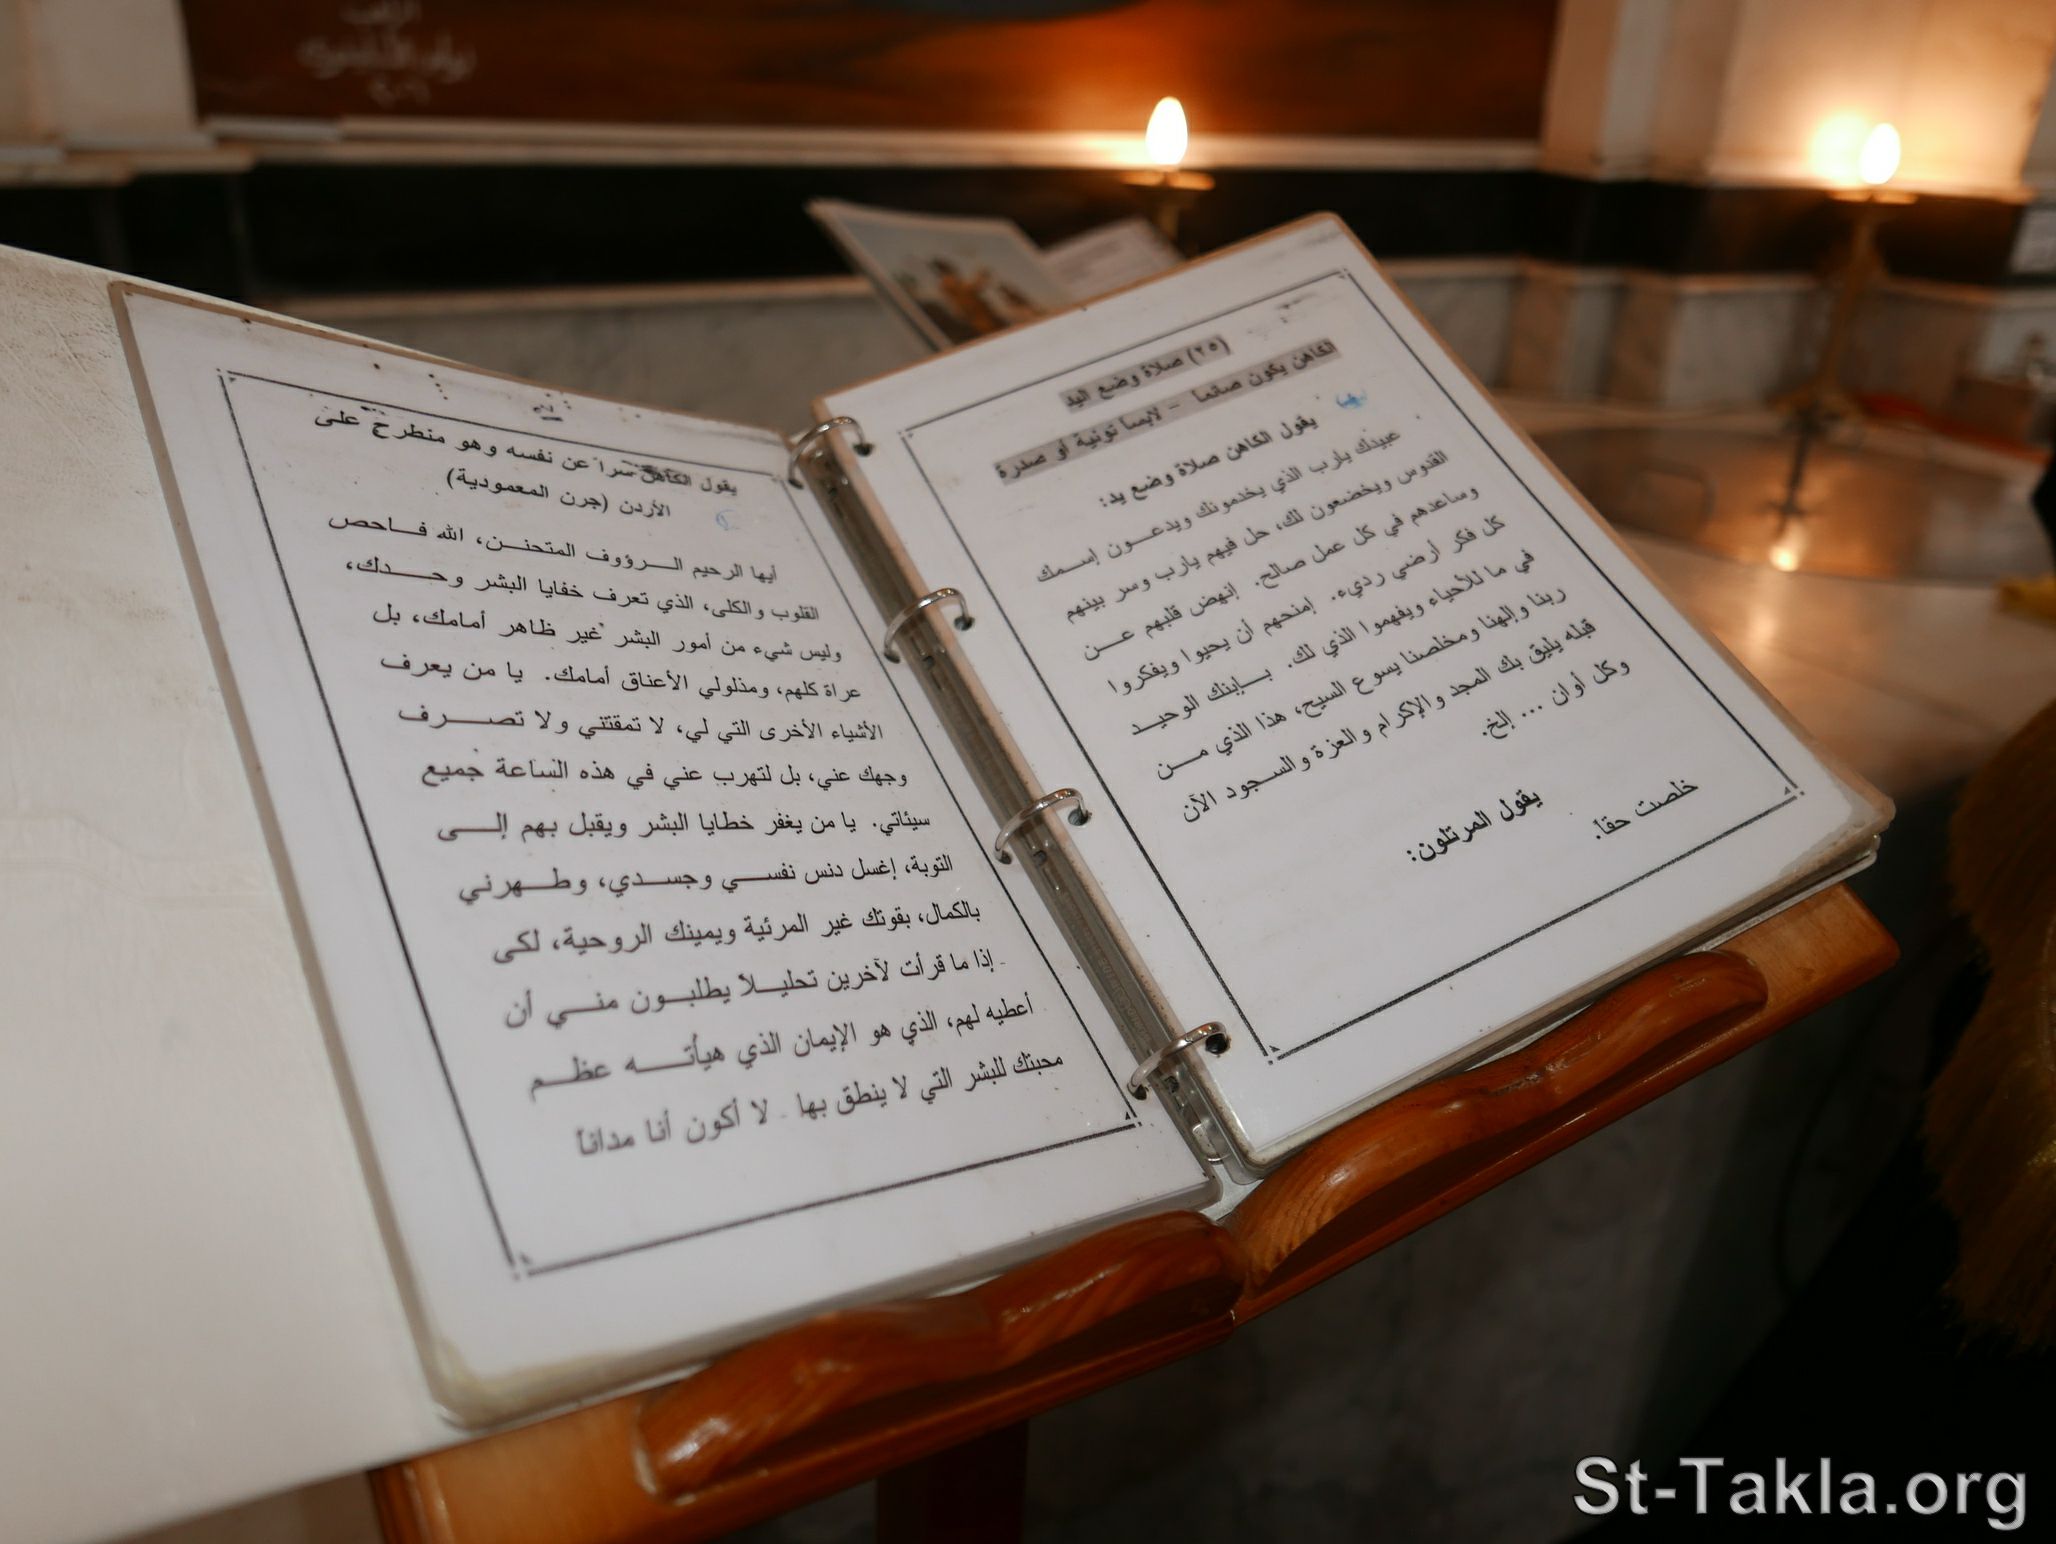 (٢٥) صلاة وضع اليد
الكاهن يكون صائما - لابسا تونية أو صدرة
يقول الكاهن صلاة وضع يد:
عبيدك يارب الذي يخدمونك ويدعـــون إســمك
القدوس ويخضعون لك، حل فيهم يارب وسر بينهم
وساعدهم في كل عمل صالح. إنهض قلبهم عـــن
كل فكر أرضي رديء. إمنحهم أن يحيوا ويفكروا
في ما للأحياء ويفهموا الذي لك. بــإبنك الوحيــد
ربنا وإلهنا ومخلصنا يسوع السيح، هذا الذي مـــن
قبله يليق بك المجد والإكرام والعزة والســجود الآن
وكل أوان ... إلخ.
يقول المرتلون:
خلصت حقا.
يقول الكاهن سراً عن نفسه وهو منطرح على
الأردن (جرن المعمودية)
أيها الرحيم الـــرؤوف المتحنـــن، الله فـــاحص
القلوب والكلى، الذي تعرف خفايا البشر وحـــدك،
وليس شيء من أمور البشر غير ظاهر أمامك، بل
عراة كلهم، ومذلولي الأعناق أمامك. يا من يعرف
الأشياء الأخرى التي لي، لا تمقتني ولا تصـــرف
وجهك عني، بل لتهرب عني في هذه الساعة جميع
سيئاتي. يا من يغفر خطايا البشر ويقبل بهم إلـــى
التوبة، إغسل دنس نفســـي وجســدي، وطـــهرني
بالكمال، بقوتك غير المرئية ويمينك الروحية، لكى
إذا ما قرأت لآخرين تحليــلاً يطلبــون منــي أن
أعطيه لهم، الذي هو الإيمان الذي هيأتـــه عظـــم
محبتك للبشر التي لا ينطق بها. لا أكون أنا مداناً
St-Takla.org